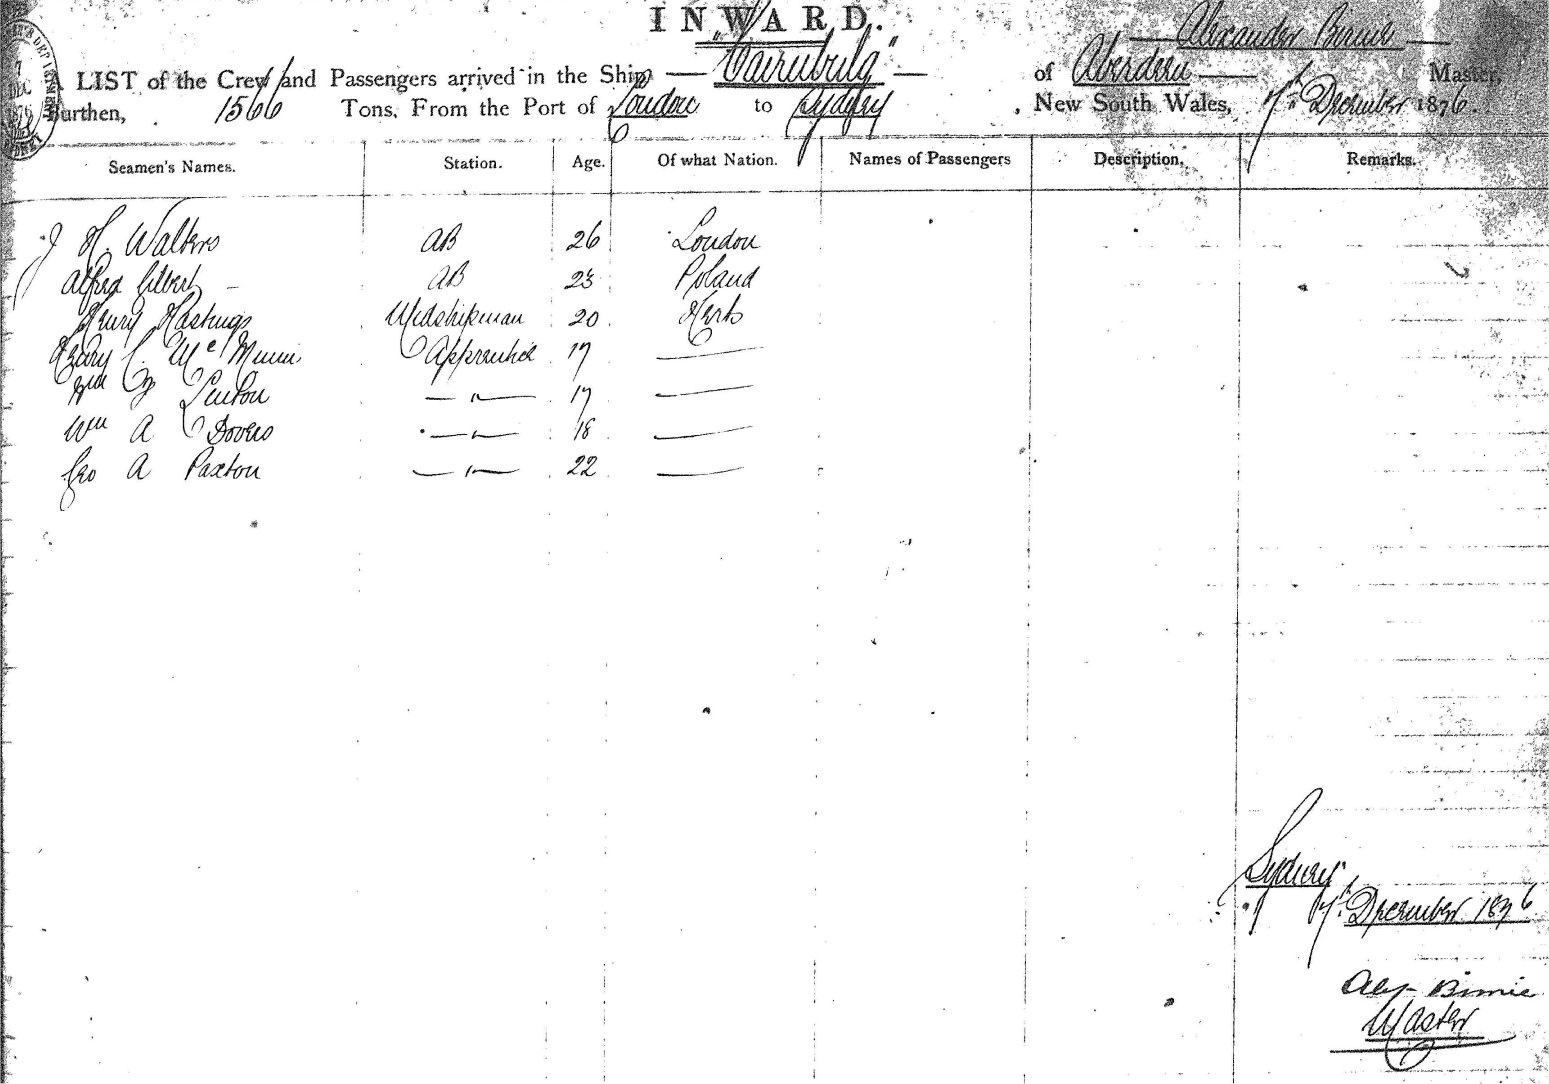 INWARD.
A LIST of the Crew and Passengers arrived in the Ship "Cairnbulg" of Aberdeen Alexander Birnie Master,
Burthen, 1566 Tons, From the Port of London to Sydney, New South Wales, 7th December 1876.
Seamen's Names. Station. Age. Of what Nation. Names of Passengers Description. Remarks.
J H. Walters AB 26 London
Alfred AB 23 Poland
Henry Hastings Midshipman 20 Herts
Harry C. Mc Minn Apprentice 17 —
Wm Lenton —"— 17 —
Wm A Dovers —"— 18 —
Geo A Paxton —"— 22 —
Sydney
7th December 1876
Alex Birnie
Master